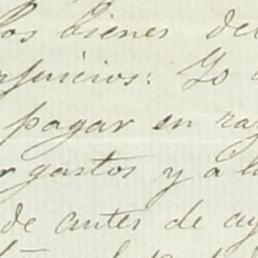 los bienes de
juicios: Yo
pagar en raz
gastos y a l
de antes de ay